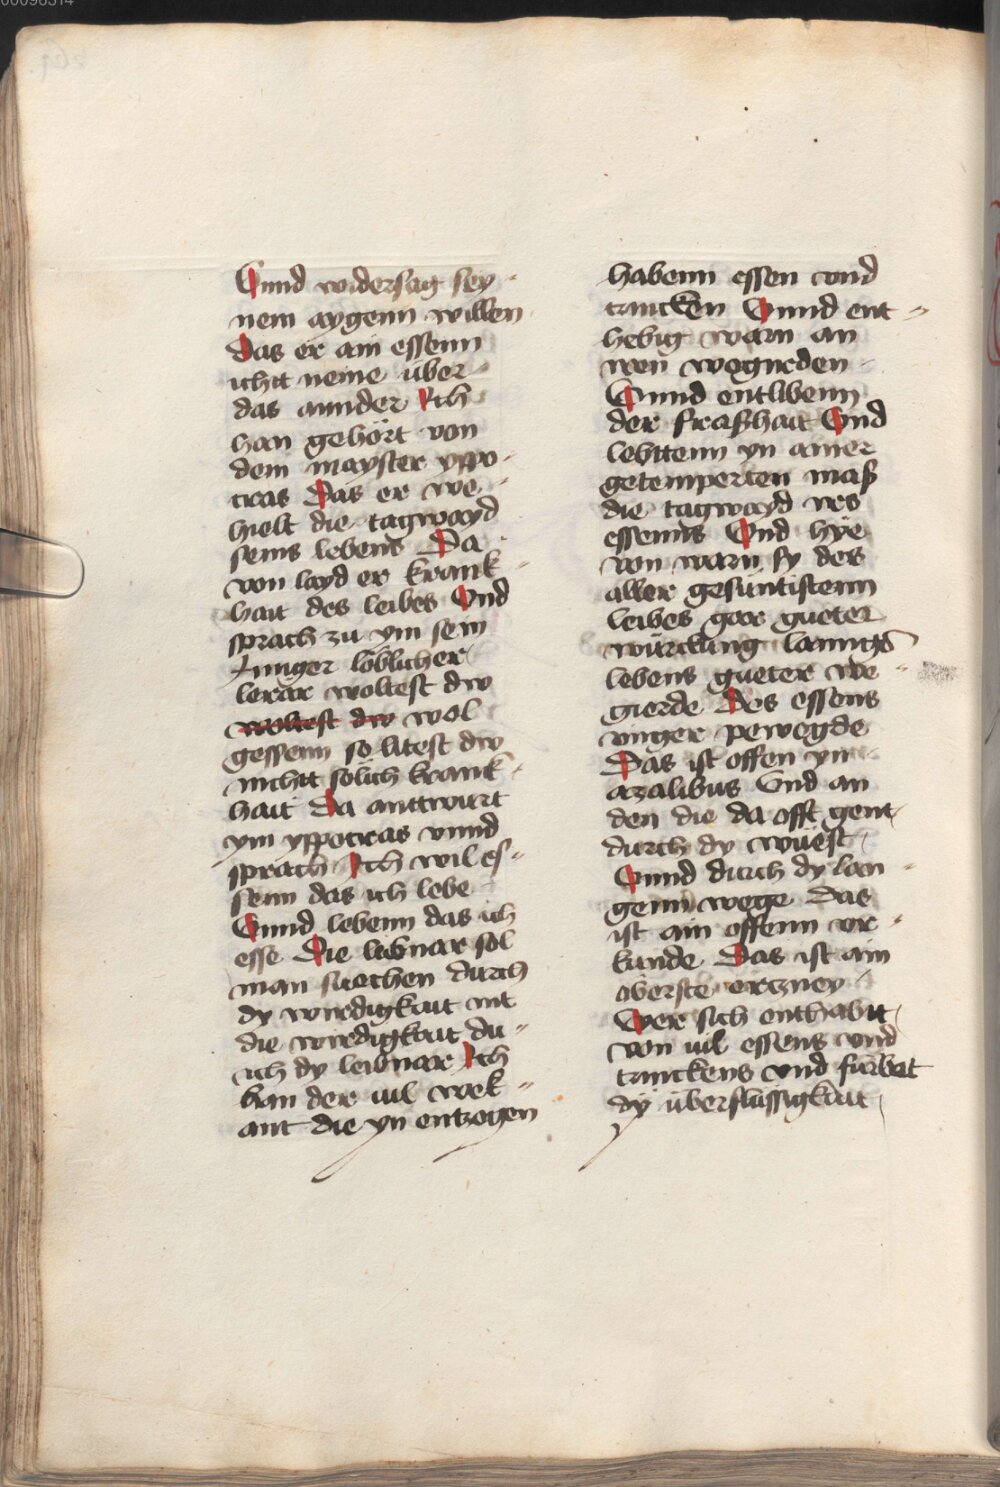 00096314
Vnnd widersag sey
nem aygenn willen
Das er ain essenn
icht neme uber
das annder Ich
han gehört von
dem mayster yppo
cras Das er we
hielt die tagwayd
seins lebens Da
von layd er kranck
hait des leibes Vnd
sprach zu ym sein
Junger löblicher
lerar woltest dw
woltest dw wol
gessenn so litest dw
nicht sölich kranck
hait Da anttwurt
ym yppocras vnnd
sprach Ich wil es
senn das ich lebe
Vnnd lebenn das ich
esse Die leibnar sol
man suechen durch
dy wirdigkait nit
die wirdigkait du
ich dy leibnar Ich
han der vil wek
ant die yn entzogen
habenn essen vnd
trincken Vnnd ent
hebig warn an
wen wegirden
Vnnd entlibenn
der fraßhait Vnd
lebttenn yn ainer
getemperten maß
die tagwayd des
essenns Vnd hye
von warn sy des
aller gesuntistenn
leibes gar gueter
würckung lanngs
lebens gueter we
gierde Des essens
ringer pewegde
Das ist offen yn
aralibus Vnd an
den die da offt gent
durch dy wüest
Vnnd durch dy lan
genn wege Das
ist ain offenn vr
kunde Das ist ain
öberste ertzney
Wer sich enthabt
von vil essens vnd
trinckens vnd fürbat
dy überflüssigkait